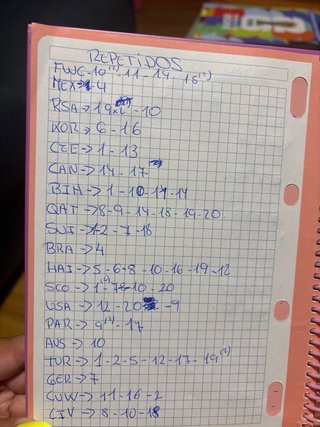 REPETIDOS
FWC-10⁽²⁾-11-14, 18⁽²⁾
MEX→4
RSA→19x2-10
KOR→6-16
CZE→1-13
CAN→14-17
BIH→1-10-11-14
QAT→8-9-14-18-19-20
SUI→2-7-18
BRA→4
HAI→5-6-8-10-16-19-12
SCO→1⁽²⁾-7-10-20
USA→12-20-9
PAR→9⁽²⁾-17
AUS→10
TUR→1-2-5-12-17-19⁽²⁾
GER→7
CUW→11-16-2
CIV→8-10-18